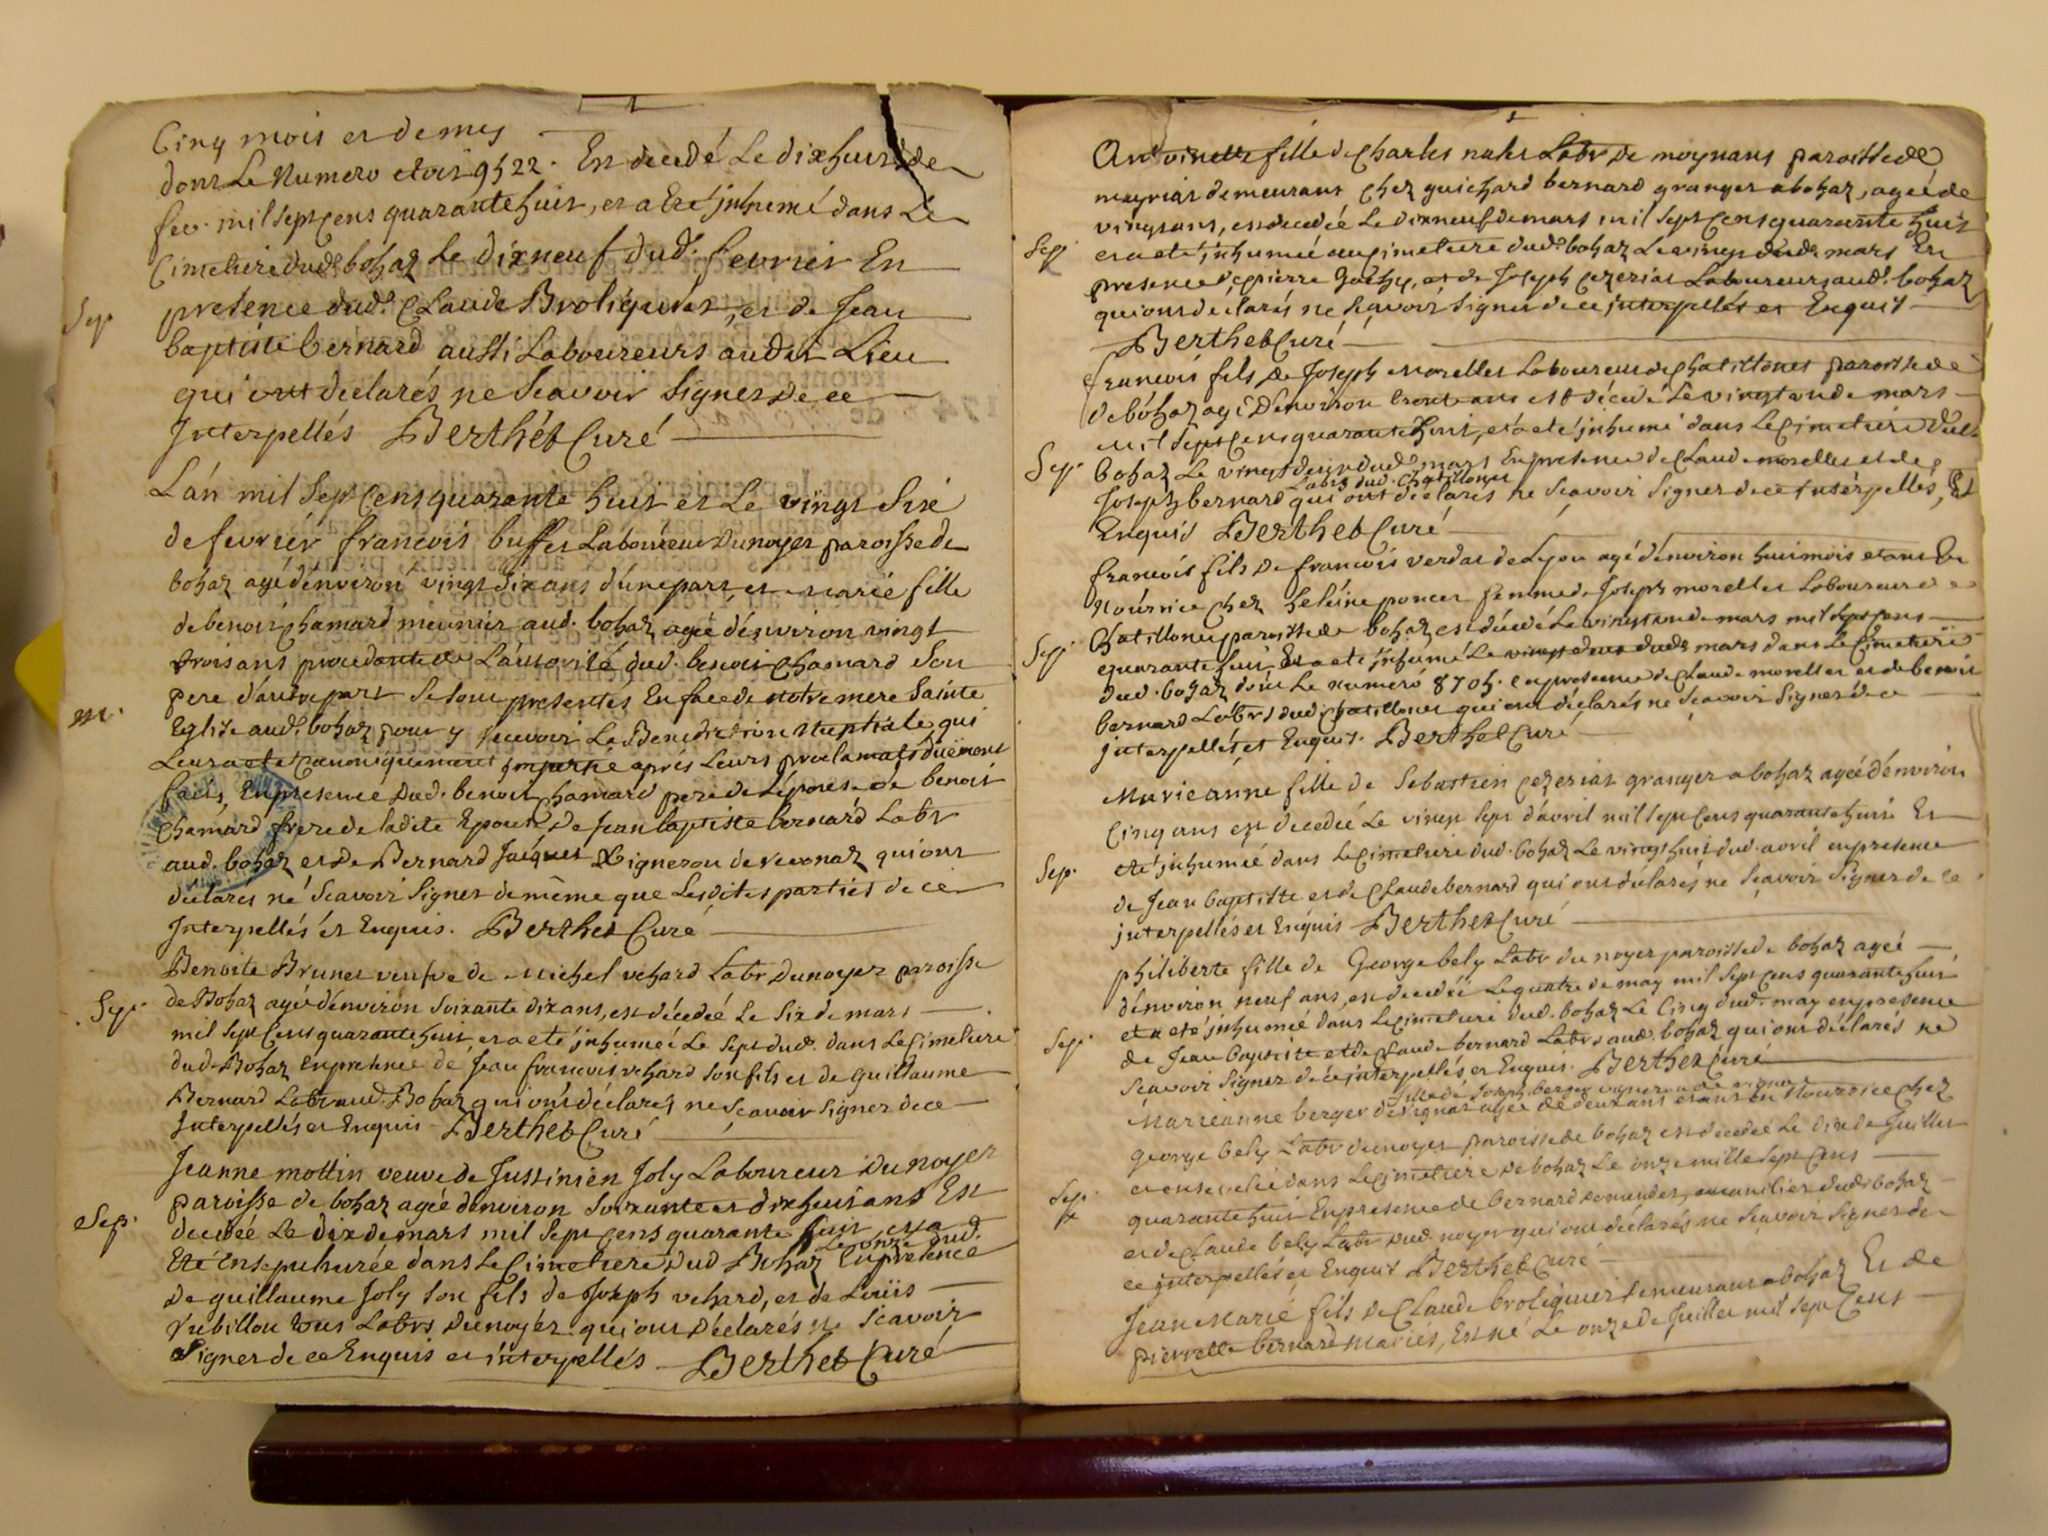 Cinq mois et demes
dont Le Numero etoit 9522. Est decedé Le dixhuit de
fev. mil sept cens quarante huit, et a eté jnhumé dans Le
Cimetiere dud. bohaz Le dixneuf dud. fevrier En
Sep. presence dud. Claude Broliquier, et de Jean
baptiste bernard aussi Laboureurs audit Lieu
qui ont declarés ne Scavoir Signer de ce
Jnterpellés Berthet Curé
L'an mil Sept Cens quarante huit et Le vingt Six
de fevrier francois buffet Laboureur Dunoyer paroisse de
bohaz agé d'environ vingt Six ans d'une part, et Marie fille
de benoit Chamard meunier aud. bohaz agée d'environ vingt
trois ans procedante de L'autorité dud. benoit Chamard Son
m. pere d'autre part Se Sont presentés En face de notre mere Sainte
Eglise aud. bohaz pour y recevoir La Benediction Nuptiale qui
Leur a eté Canoniquement jmpartie aprés Leurs proclamats düement
faits, En presence Dud. benoit Chamard pere de L'epouse de benoit
Chamard frere de ladite Epouse, de Jean baptiste bernard Labr
aud. bohaz et de Bernard Jacquet Vigneron de revonaz qui ont
déclarés né Scavoir Signer de même que Lesdites parties de ce
Jnterpellés et Enquis. Berthet Curé
Benoite Brunet veufve de Michel vehard Labr Dunoyer paroisse
Sep. de Bohaz agée d'environ Soixante dix ans, est décedée Le Six de mars
mil Sept Cens quarante huit, et a eté jnhumée Le Sept dud. dans Le Cimetiere
dud. Bohaz En presence de Jean francois vehard Son fils et de guillaume
Bernard Labr aud. Bohaz qui ont déclarés ne Scavoir Signer de ce
Jnterpellés et Enquis Berthet Curé
Jeanne mottin veuve de Justinien Joly Laboureur Dunoyer
Sep. paroisse de bohaz agée d'environ Soixante et dixhuit ans Est
decedée Le dix de mars mil Sept Cens quarante huit et a
Le onze dud.
Eté Ensepulturée dans Le Cimetiere dud Bohaz En presence
de guillaume Joly Son fils de Joseph vehard, et de Loüis
rubillon tous Labrs Dunoyer qui ont Déclarés ne Scavoir
Signer de ce Enquis et jnterpellés Berthet Curé
fille de Charles Labr De moynans paroisse de
meyriat demeurant Chez guichard bernard granger a bohaz, agée de
vingt ans, est decedée Le dixneuf de mars mil Sept Cens quarante huit
Sep. et a eté jnhumée au Cimetiere dud. bohaz Le vingt dud. mars En
presence de pierre et de Joseph Cezeriat Laboureurs aud. bohaz
qui ont déclarés ne Scavoir Signer de ce jnterpellés et Enquis
Berthet Curé
francois fils De Joseph Morellet Laboureur de Chatillonet paroisse de
de bohaz agé D'environ trente ans est décedé Le vingt un de mars
Mil Sept Cens quarante huit, et a eté jnhumé dans Le Cimetiere dud.
Sep. bohaz Le vingt deux dud. mars En presence de Claude morellet et de
Labrs dud. Chatillonet
Joseph bernard qui ont déclarés ne Scavoir Signer de ce jnterpellés, Et
Enquis Berthet Curé
francois fils De francois verdat de Lyon agé d'environ huit mois etant En
Nourrice Chez heleine poncet femme de Joseph morellet Laboureur de
Sep. Chatillonet paroisse de bohaz est décedé Le vingt un de mars mil Sept Cens
quarante huit Et a eté jnhumé Le vingt deux dud. mars dans Le Cimetiere
dud. bohaz dont Le numero 8705. en presence de Claude morellet et de benoit
bernard Labrs dud. Chatillonet qui ont déclarés ne Scavoir Signer de ce
jnterpellés, et Enquis. Berthet Curé
Marieanne fille de Sebastien Cezeriat granger a bohaz agée d'environ
Cinq ans est decedée Le vingt Sept d'avril mil Sept Cens quarante huit Et
Sep. eté jnhumée dans Le Cimetiere dud. bohaz Le vingt huit dud. avril en presence
de Jean baptiste et de Claude bernard qui ont déclarés ne Scavoir Signer de ce
jnterpellés et Enquis Berthet Curé
philiberte fille de George bely Labr du noyer paroisse de bohaz ageé
d'environ neuf ans, est decedée Le quatre de may mil Sept Cens quarante huit
Sep. et a eté jnhumée dans Le Cimetiere dud. bohaz Le Cinq dud. may en presence
de Jean baptiste et de Claude bernard Labrs aud. bohaz qui ont déclarés ne
Scavoir Signer de ce jnterpellés et Enquis. Berthet Curé
fille de Joseph berger vigneron
Marieanne berger de agée de deux ans etant en Nourrice Chez
george bely Labr Dunoyer paroisse de bohaz est decedée Le dix de Juillet
et ensevelie dans Le Cimetiere De bohaz Le onze mille Sept Cens
Sep. quarante huit En presence de bernard dud. bohaz
et de Claude bely Labr Dud. noyer qui ont déclarés ne Scavoir Signer de
ce jnterpellés et Enquis Berthet Curé
Jean Marie fils de Claude broliquier demeurant a bohaz Et de
pierrette bernard mariés, Est né Le onze de Juillet mil Sept Cens